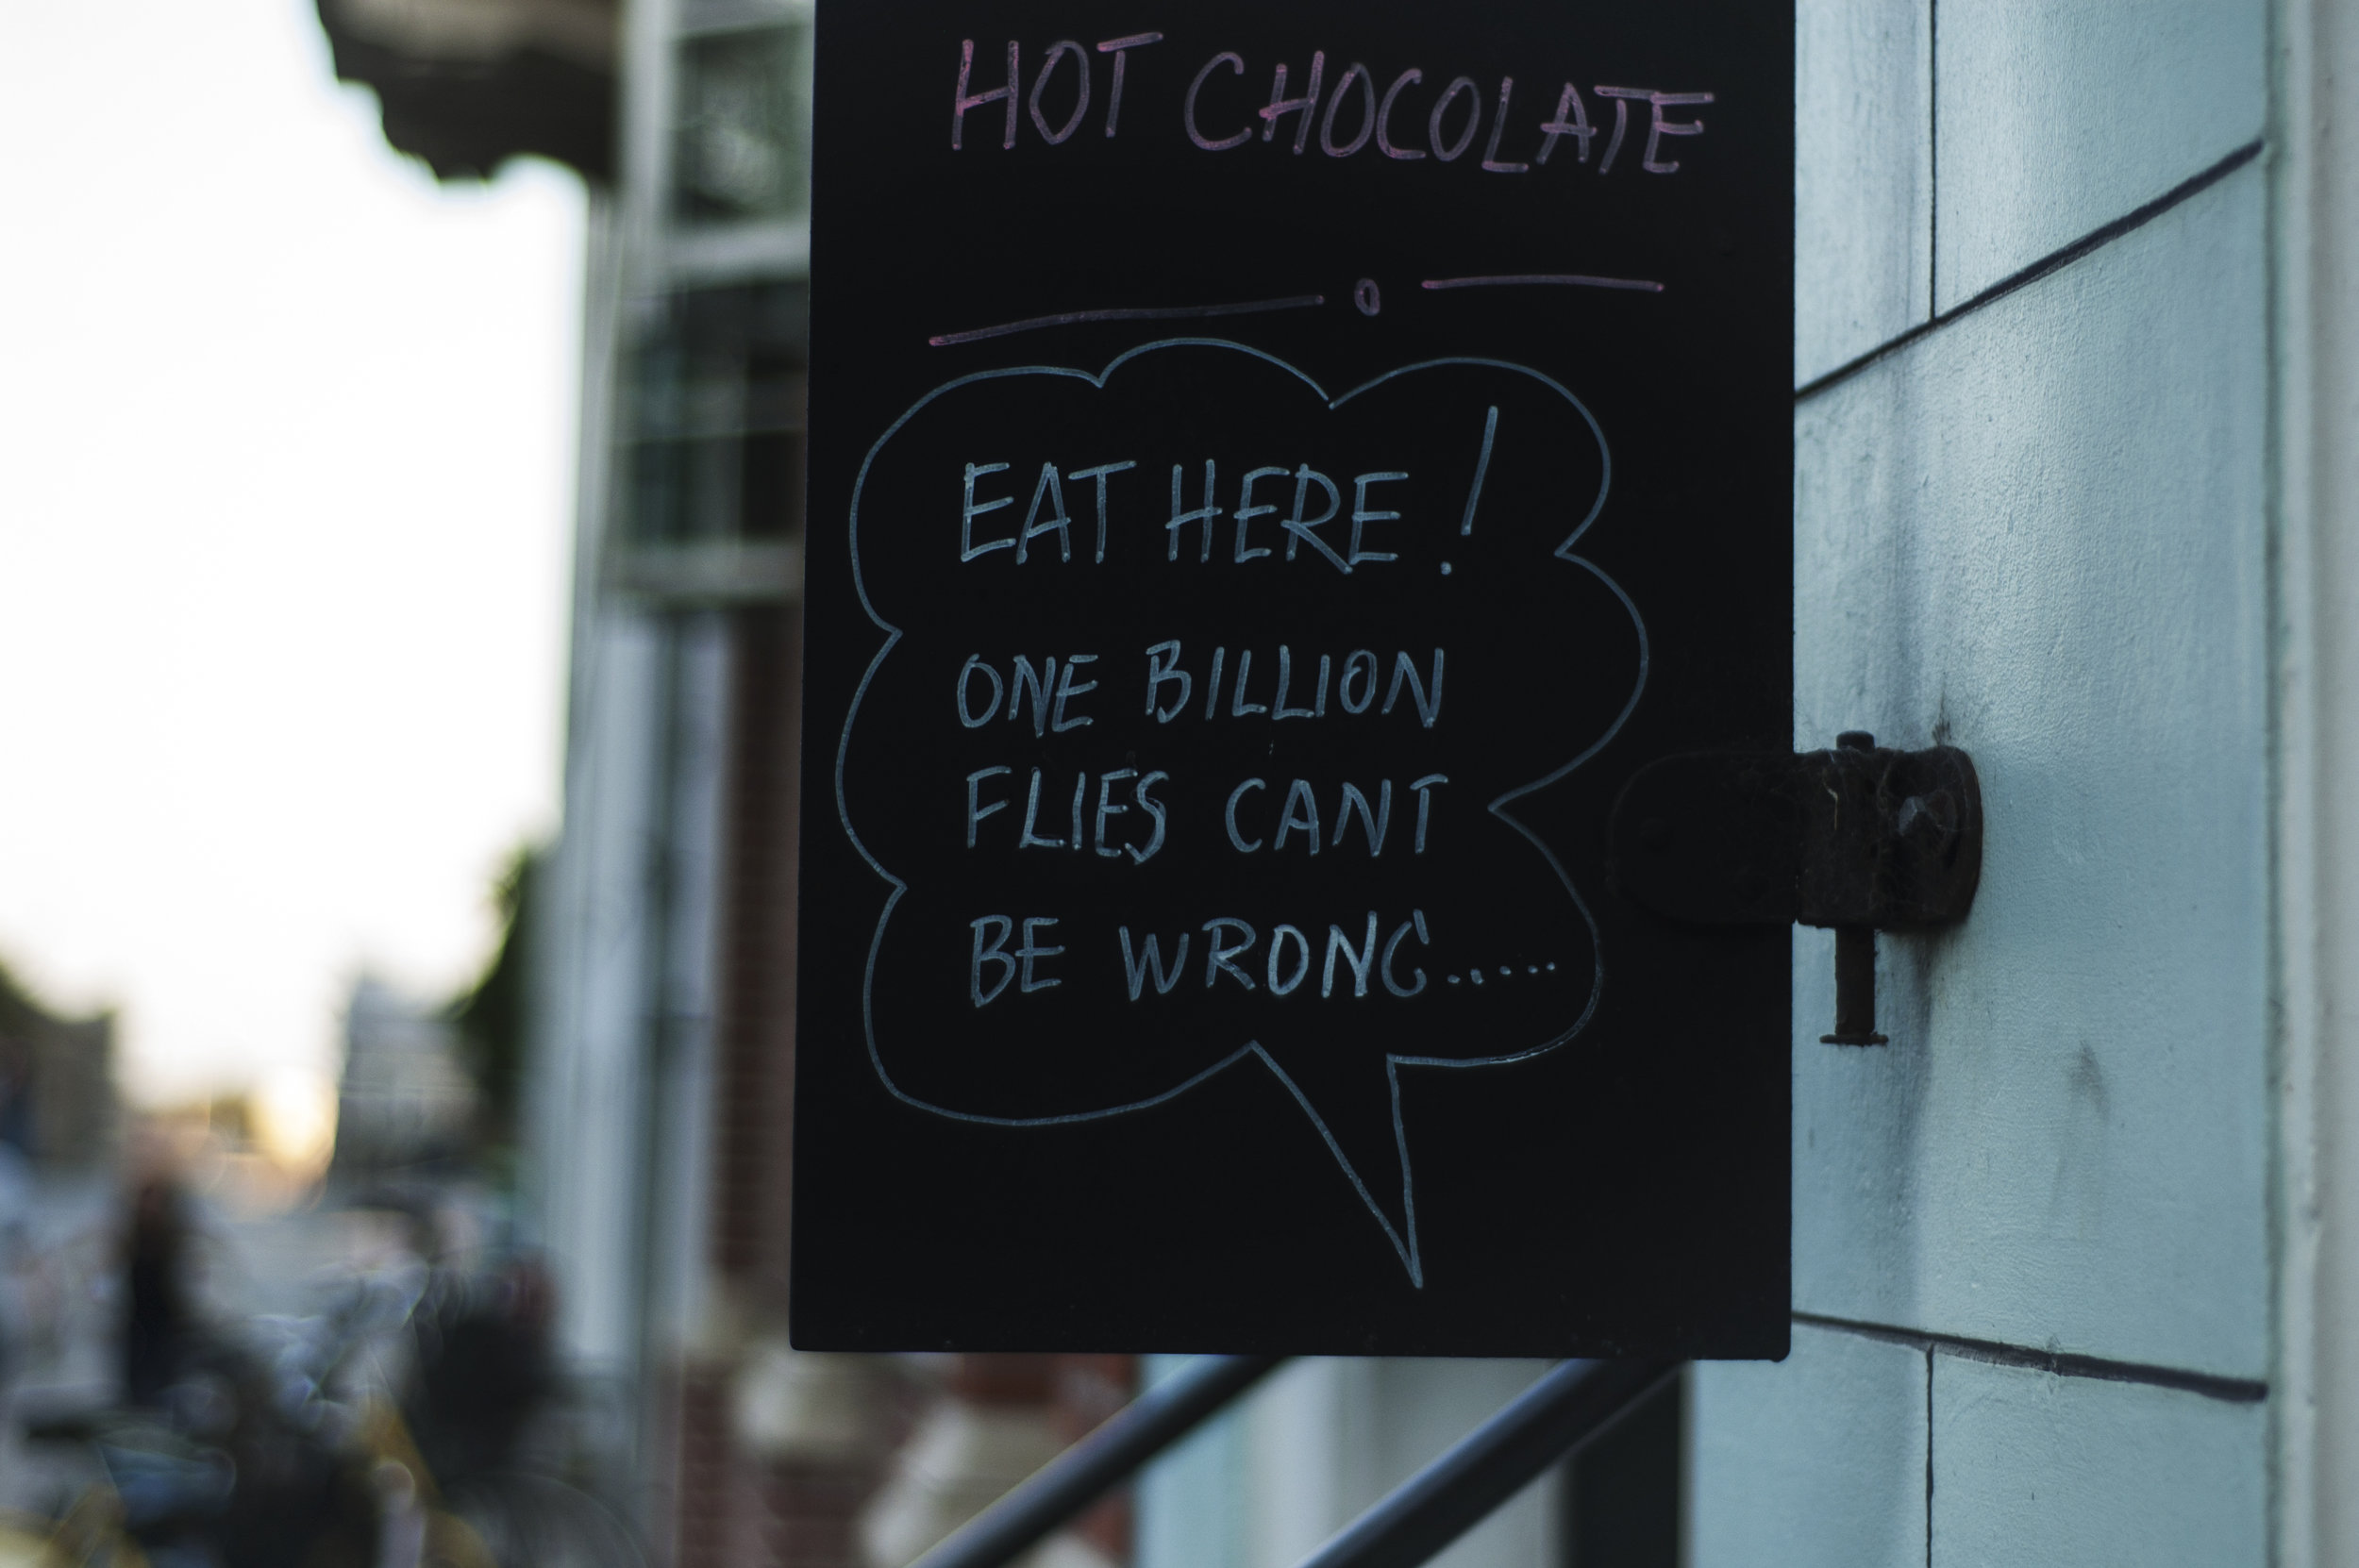 HOT CHOCOLATE
EAT HERE!
ONE BILLION
FLIES CANT
BE WRONG.....